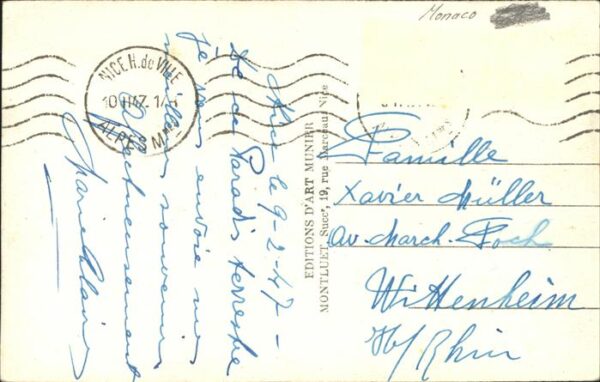 Monaco
NICE H. de VILLE
ALPES Mmes
Nice le 9-2-47-
De ce Paradis terrestre
je vous envoie mes
meilleurs souvenirs
Affectueusement
EDITIONS D'ART MUNIER
MONTLUET, Succr, 19, rue Marceau, Nice
Famille
Xavier Müller
av. March. Foch
Wittenheim
Ht/Rhin